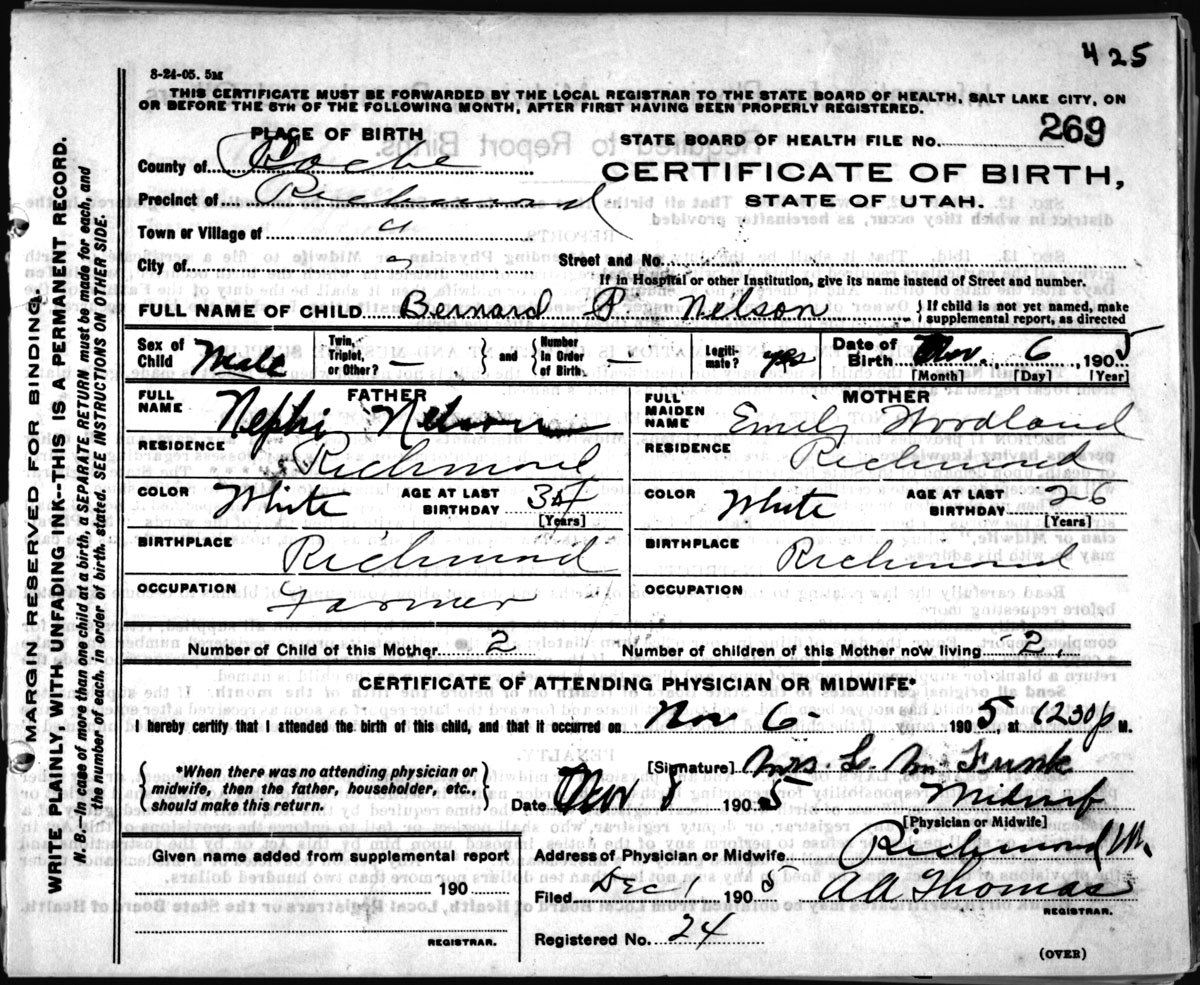 425
8-24-05. 5M
THIS CERTIFICATE MUST BE FORWARDED BY THE LOCAL REGISTRAR TO THE STATE BOARD OF HEALTH, SALT LAKE CITY, ON
OR BEFORE THE 5TH OF THE FOLLOWING MONTH, AFTER FIRST HAVING BEEN PROPERLY REGISTERED.
PLACE OF BIRTH
STATE BOARD OF HEALTH FILE No. 269
County of Cache
CERTIFICATE OF BIRTH,
Precinct of Richmond
STATE OF UTAH.
Town or Village of "
City of
Street and No.
If in Hospital or other Institution, give its name instead of Street and number.
FULL NAME OF CHILD Bernard P. Nelson } If child is not yet named, make supplemental report, as directed
Sex of Child Male Twin, Triplet, or Other? - and Number in Order of Birth - Legitimate? yes Date of Birth Nov. 6, 1905
[Month] [Day] [Year]
FATHER
MOTHER
FULL NAME Nephi Nelson
FULL MAIDEN NAME Emily Woodland
RESIDENCE Richmond
RESIDENCE Richmond
COLOR White AGE AT LAST BIRTHDAY [Years]
COLOR White AGE AT LAST BIRTHDAY 26 [Years]
BIRTHPLACE Richmond
BIRTHPLACE Richmond
OCCUPATION Farmer
OCCUPATION
Number of Child of this Mother 2
Number of children of this Mother now living 2.
CERTIFICATE OF ATTENDING PHYSICIAN OR MIDWIFE*
I hereby certify that I attended the birth of this child, and that it occurred on Nov 6 - 1905, at 1230 p M.
*When there was no attending physician or
midwife, then the father, householder, etc.,
should make this return.
[Signature] Mrs. L. M. Funk
Date 1905 Midwife
[Physician or Midwife]
Given name added from supplemental report
190
REGISTRAR.
Address of Physician or Midwife Richmond
Filed Dec 1 1905 AA Thomas
REGISTRAR.
Registered No. 24
(OVER)
MARGIN RESERVED FOR BINDING.
WRITE PLAINLY, WITH UNFADING INK--THIS IS A PERMANENT RECORD.
N. B.—In case of more than one child at a birth, a SEPARATE RETURN must be made for each, and
the number of each, in order of birth, stated. SEE INSTRUCTIONS ON OTHER SIDE.